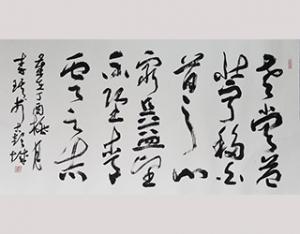 老當益
壯寧移白
首之心
窮且益堅
不墜青
雲之志
丁酉梅月